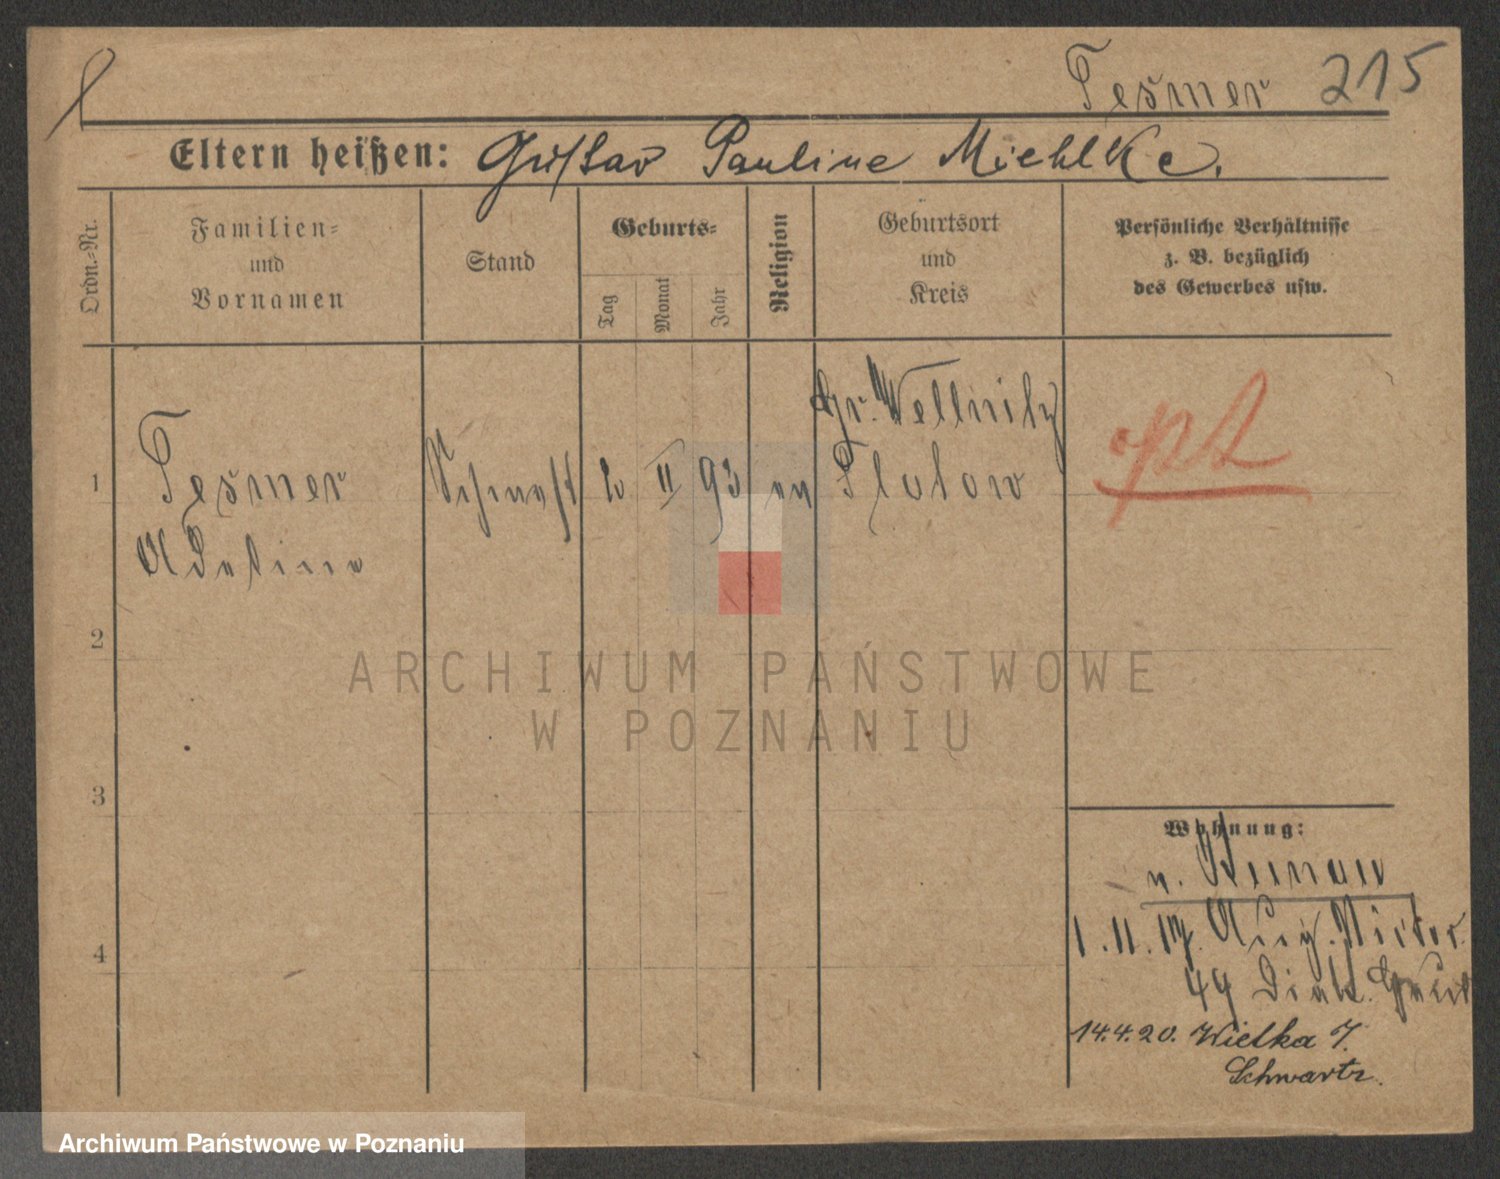 Tesmer 215
Eltern heißen: Gustav Pauline Miehlke.
Ordn.-Nr.
Familien-
und
Vornamen
Stand
Geburts-
Tag
Monat
Jahr
Religion
Geburtsort
und
Kreis
Persönliche Verhältnisse
z. B. bezüglich
des Gewerbes usw.
Gr. Wellnitz
1 Tesmer Schwest 20 II 93 ev Flatow
Adeline
2
3
4
Wohnung:
1.11.17. Aug. Victor.
49 Diak.
14.4.20. Wielka 7.
Schwartz.
ARCHIWUM PAŃSTWOWE
W POZNANIU
Archiwum Państwowe w Poznaniu